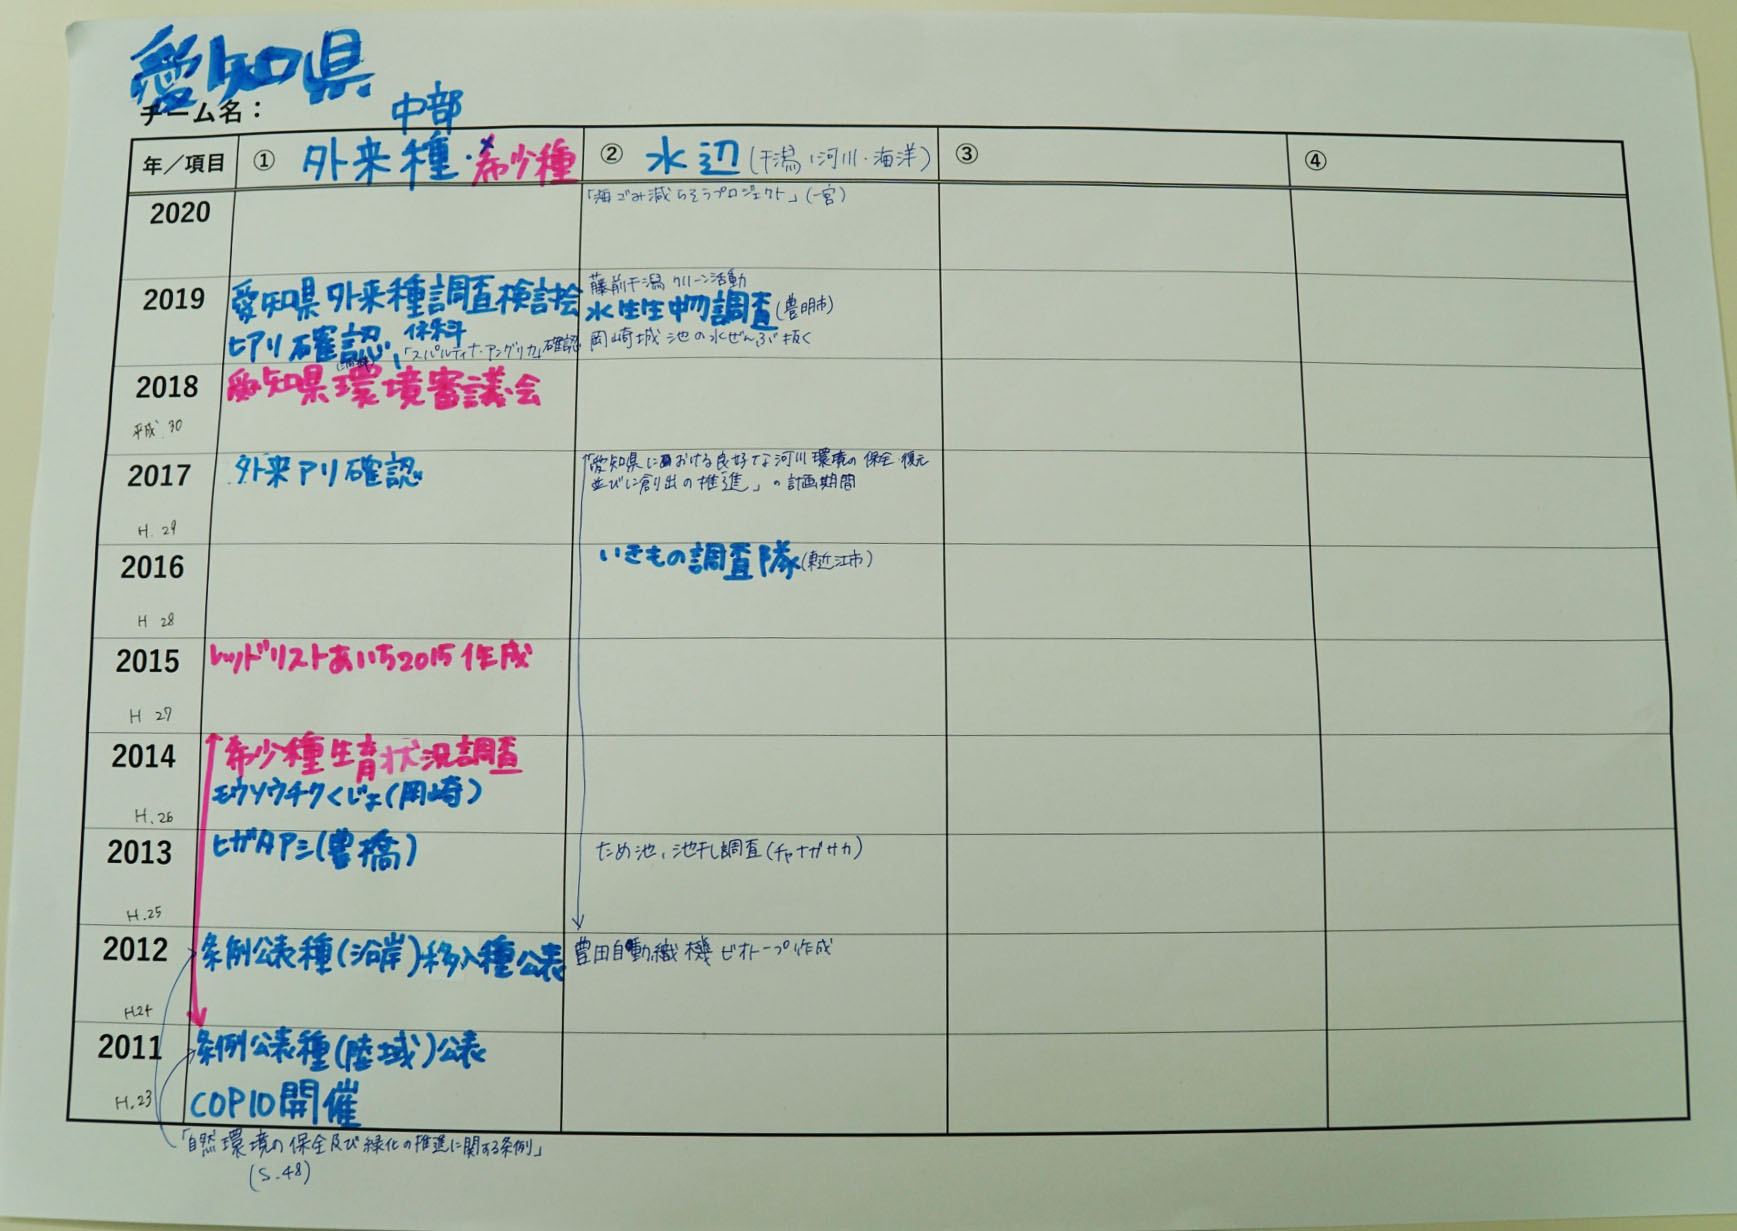 愛知県
チーム名：
中部
年／項目 ① 外来種・希少種 ② 水辺(干潟、河川・海洋) ③ ④
2020 「海ごみ減らそうプロジェクト」(一宮)
2019 愛知県外来種調査検討会
ヒアリ確認、
「スパルティナ・アングリカ」確認
藤前干潟クリーン活動
水生生物調査(豊明市)
岡崎城池の水ぜんぶ抜く
2018 愛知県環境審議会
平成.30
2017 外来アリ確認
「愛知県における良好な河川環境の保全・復元
並びに創出の推進」の計画期間
H.29
2016 いきもの調査隊(東近江市)
H 28
2015 レッドリストあいち2015作成
H 27
2014 希少種生育状況調査
モウソウチクくじょ(岡崎)
H.26
2013 ヒガタアシ(豊橋) ため池、池干し調査(チャナガサカ)
H.25
2012 条例公表種(沿岸)移入種公表 豊田自動織機ビオトープ作成
H.24
2011 条例公表種(陸域)公表
H.23 COP10開催
「自然環境の保全及び緑化の推進に関する条例」
(S.48)